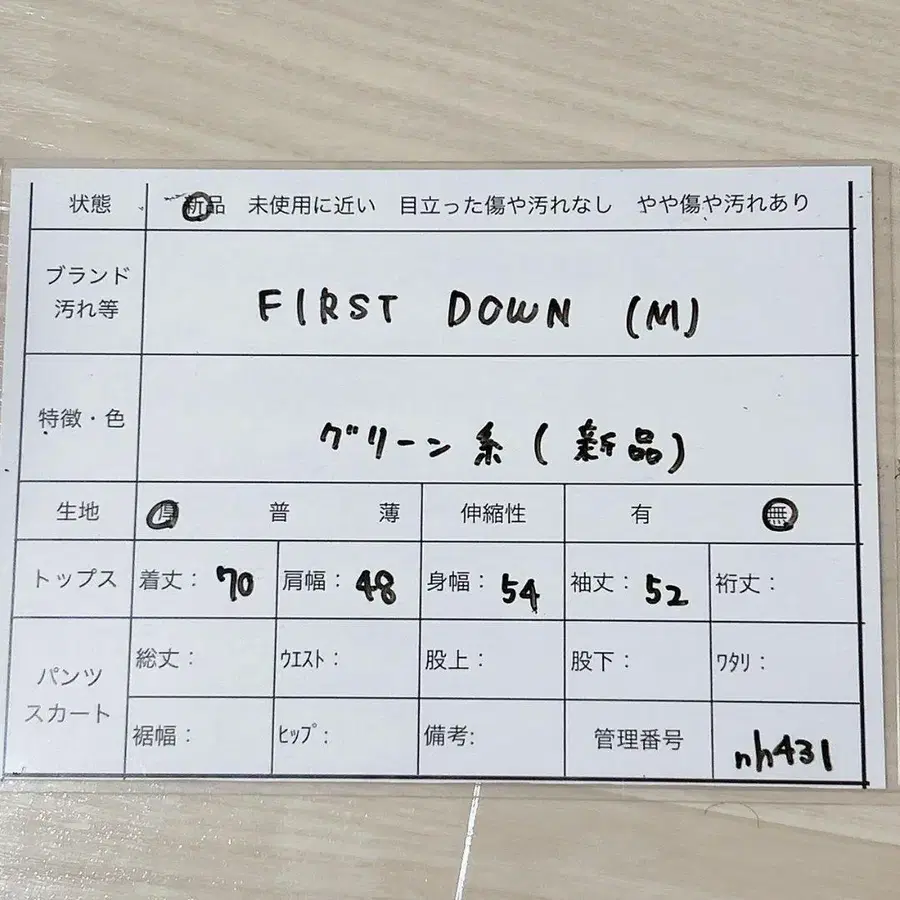 状態 新品 未使用に近い 目立った傷や汚れなし やや傷や汚れあり
ブランド
汚れ等 FIRST DOWN (M)
特徴・色 グリーン系(新品)
生地 厚 普 薄 伸縮性 有 無
トップス 着丈: 70 肩幅: 48 身幅: 54 袖丈: 52 裄丈:
パンツ
スカート
総丈: ウエスト: 股上: 股下: ワタリ:
裾幅: ヒップ: 備考: 管理番号 nh431